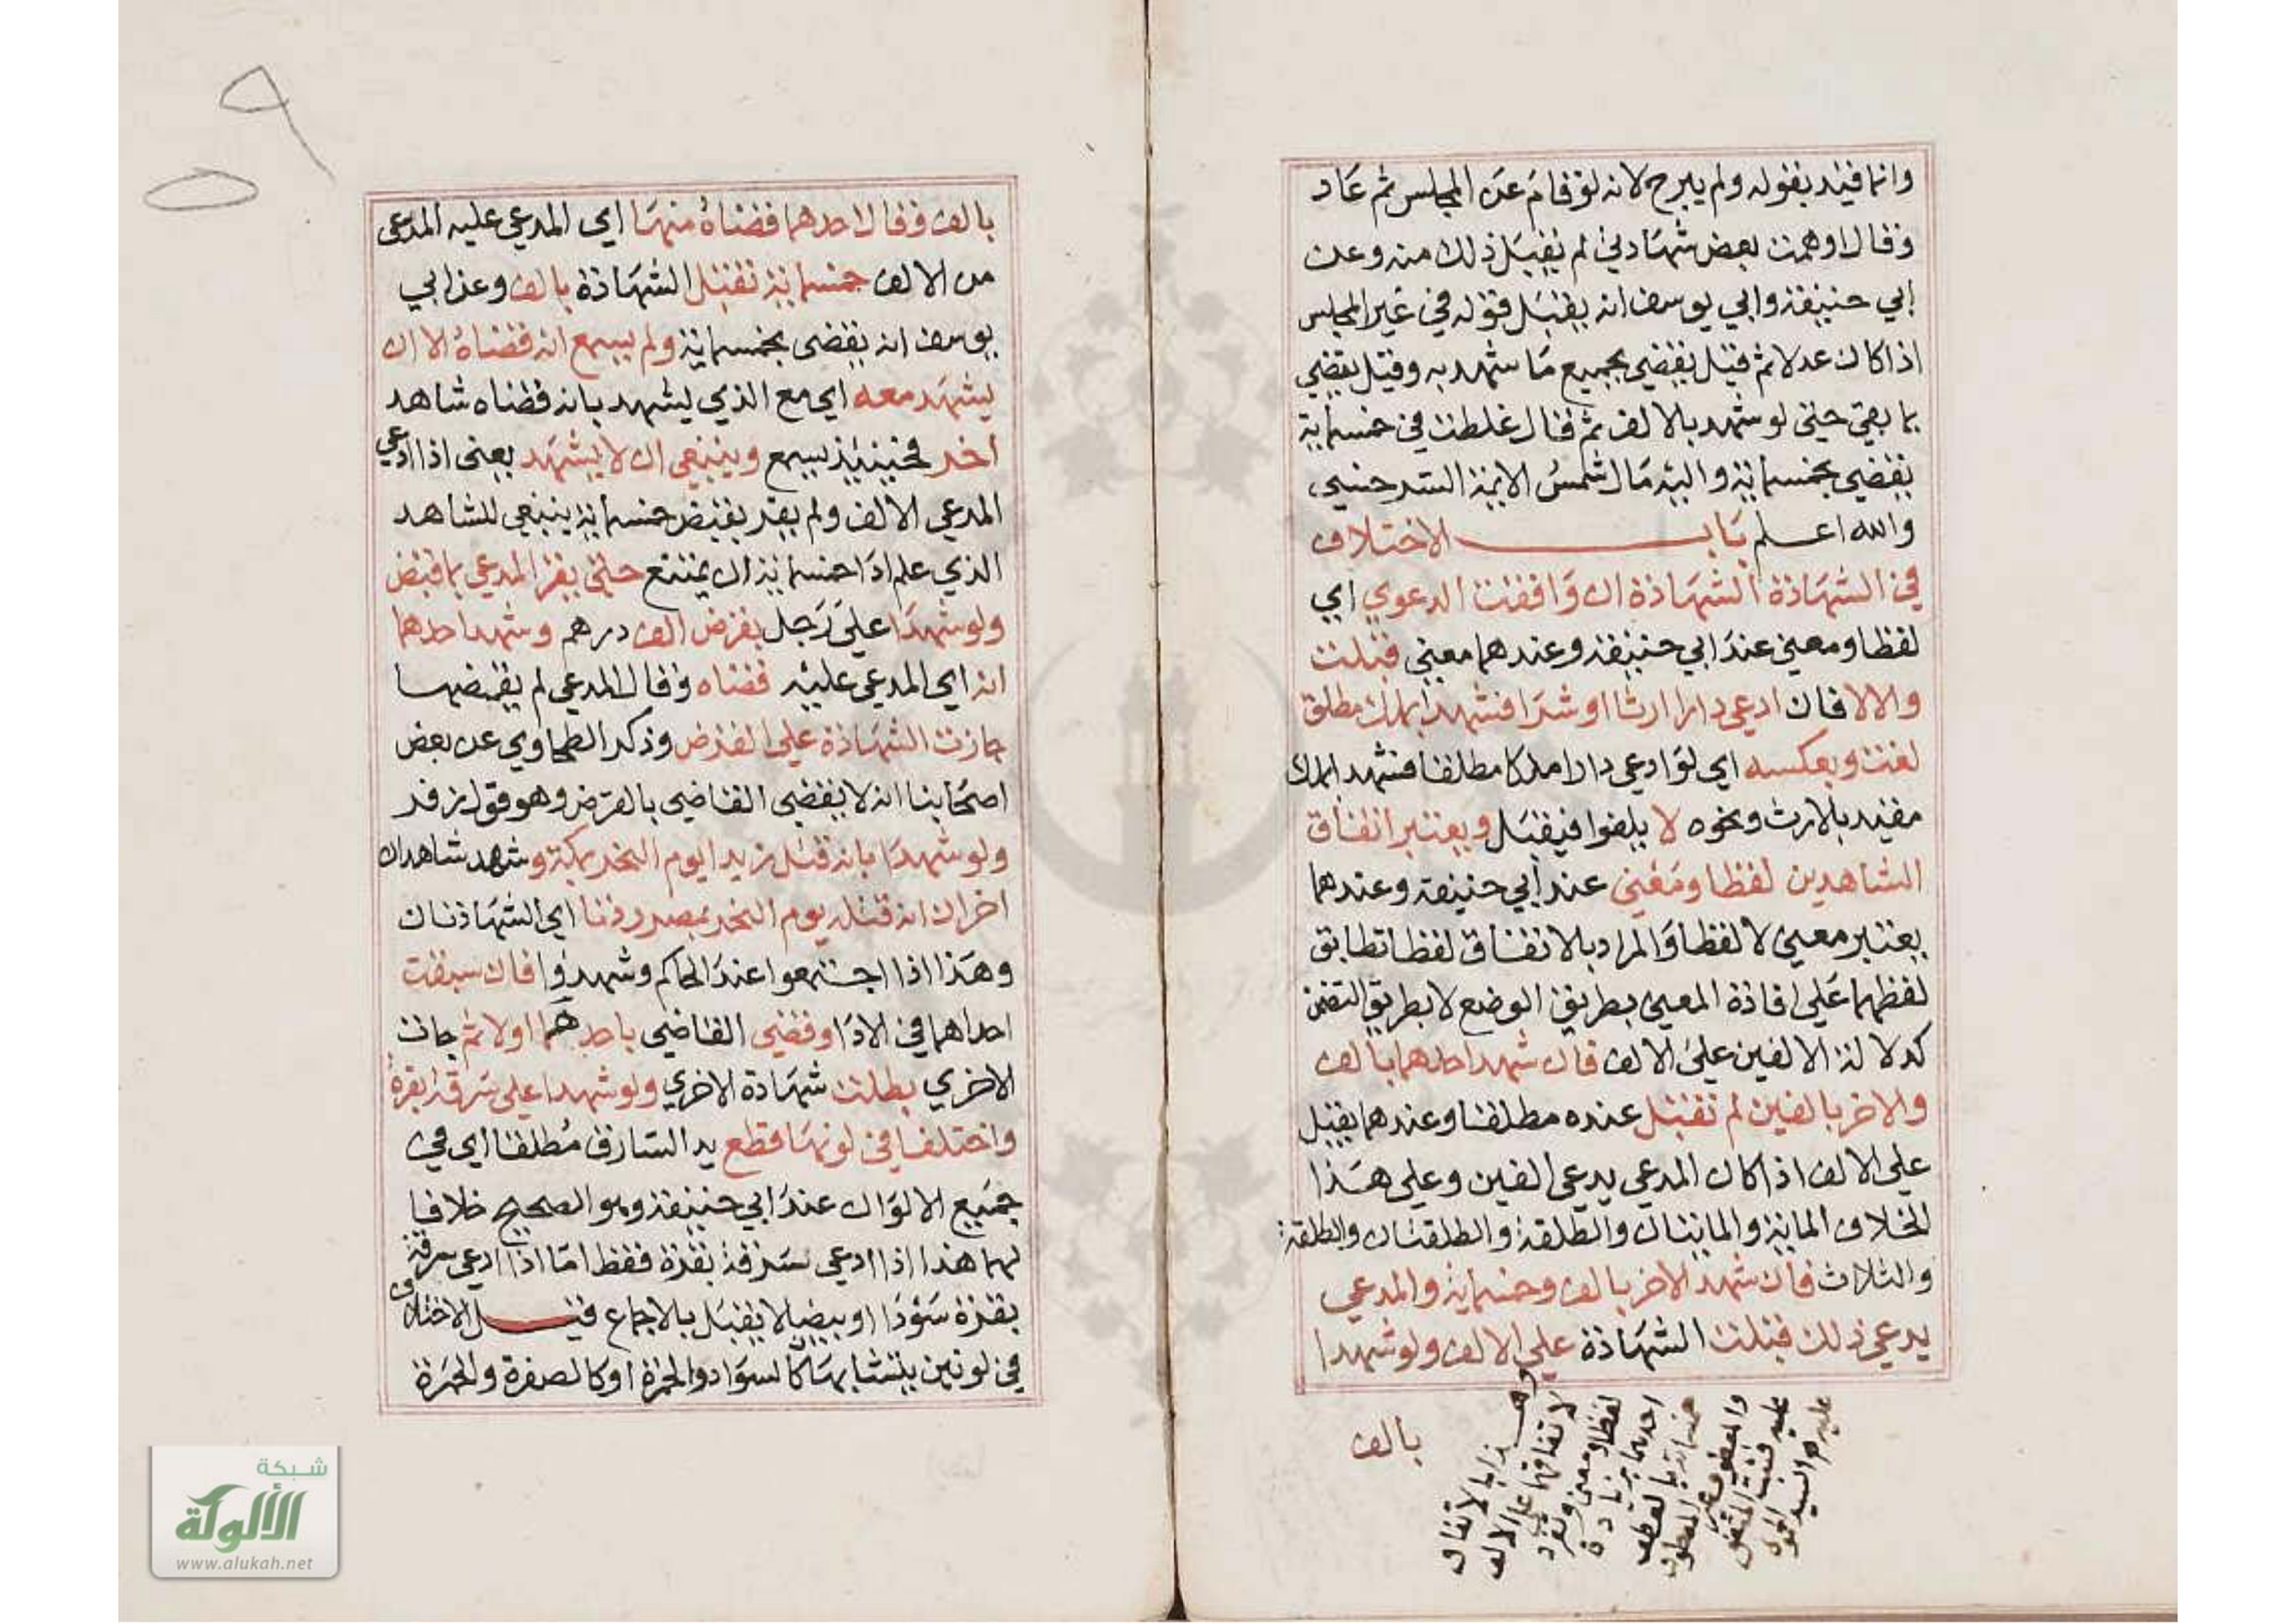 وانما قيد بقوله ولم يبرح لانه لو قام عن المجلس ثم عاد
وقال اوهمت بعض شهادتي لم يقبل ذلك منه وعن
ابي حنيفة وابي يوسف انه يقبل قوله في غير المجلس
اذا كان عدلا ثم قيل يقضي بجميع ما شهد به وقيل يقضي
بما بقي حتى لو شهد بالالف ثم قال غلطت في خمسماية
يقضي بخمسماية واليه مال شمس الايمة السرخسي
والله اعلم باب الاختلاف
في الشهادة الشهادة ان وافقت الدعوي اي
لفظا ومعني عند ابي حنيفة وعندهما معني قبلت
والا لا فان ادعي دارا ارثا او شرا فشهدا بملك مطلق
لغت وبعكسه اي لو ادعي دارا ملكا مطلقا فشهدا بملك
مقيد بالارث ونحوه لا يلغوا فيقبل ويعتبر اتفاق
الشاهدين لفظا ومعني عند ابي حنيفة وعندهما
يعتبر معني لا لفظا والمراد بالاتفاق لفظا تطابق
لفظهما علي افادة المعني بطريق الوضع لا بطريق التضمن
كدلالة الالفين علي الالف فان شهد احدهما بالف
والاخر بالفين لم تقبل عنده مطلقا وعندهما يقبل
علي الالف اذا كان المدعي يدعي الفين وعلي هذا
الخلاف الماية والمايتان والطلقة والطلقتان والطلقة
والثلاث فان شهد الاخر بالف وخمسماية والمدعي
يدعي ذلك قبلت الشهادة علي الالف ولو شهدا
بالف
وهذا بالاتفاق
لاتفاقهما علي الالف
لفظا ومعني وتفرد
احدهما بزيادة
خمسماية بالعطف
والمعطوف غير المعطوف
عليه فثبت المتفق
عليه
بالف وقال احدهما قضاه منها اي المدعي عليه المدعي
من الالف خمسماية تقبل الشهادة بالف وعن ابي
يوسف انه يقضي بخمسماية ولم يسمع انه قضاه الا ان
يشهد معه اي مع الذي يشهد بانه قضاه شاهد
اخر فحينيذ يسمع وينبغي ان لا يشهد يعني اذا ادعي
المدعي الالف ولم يقر بقبض خمسماية ينبغي للشاهد
الذي علم ادا خمسماية ان يمتنع حتي يقر المدعي بما قبض
ولو شهدا علي رجل بقرض الف درهم وشهد احدهما
انه اي المدعي عليه قضاه وقال المدعي لم يقبضها
جازت الشهادة علي القرض وذكر الطحاوي عن بعض
اصحابنا انه لا يقضي القاضي بالقرض وهو قول زفر
ولو شهدا بانه قتل زيدا يوم النحر بمكة وشهد شاهدان
اخران انه قتله يوم النحر بمصر ردتا اي الشهادتان
وهذا اذا اجتمعوا عند الحاكم وشهدوا فان سبقت
احداهما في الادا وقضي القاضي باحدهما اولا ثم جات
الاخري بطلت شهادة الاخري ولو شهدا علي سرقة بقرة
واختلفا في لونها قطع يد السارق مطلقا اي في
جميع الالوان عند ابي حنيفة وهو الصحيح خلافا
لهما هذا اذا ادعي سرقة بقرة فقط اما اذا ادعي سرقة
بقرة سودا او بيضا لا يقبل بالاجماع قيل الاختلاف
في لونين يتشابهان كالسواد والحمرة او كالصفرة والحمرة
شبكة
الألوكة
www.alukah.net